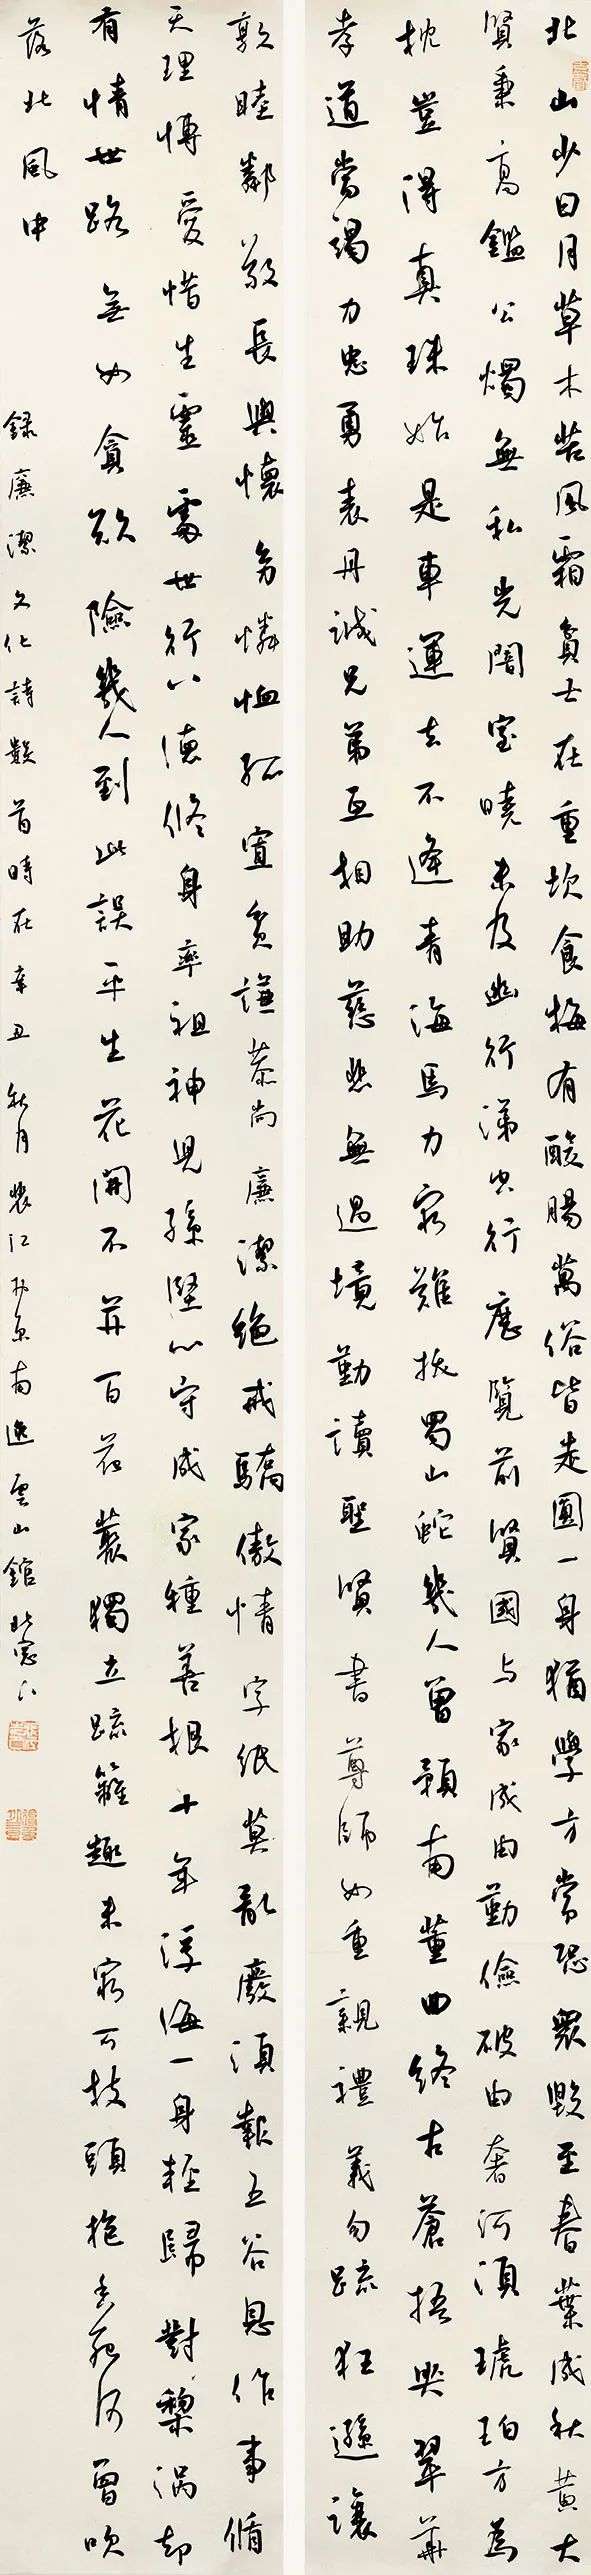 北山少日月草木苦風霜貧士在重坎食梅有酸腸萬俗皆走圓一身猶學方常恐眾毀至春葉成秋黃大
賢秉高鑑公燭無私光闇室曉未及幽行涕空行歷覽前賢國與家成由勤儉破由奢何須琥珀方為
枕豈得真珠始是車運去不逢青海馬力窮難拔蜀山蛇幾人曾預南薰曲終古蒼梧哭翠華
孝道當竭力忠勇表丹誠兄弟互相助慈悲無過境勤讀聖賢書尊師如重親禮義勿疏狂遜讓
敦睦鄰敬長與懷幼憐恤孤寡貧謙恭尚廉潔絕戒驕傲情字紙莫亂廢須報五谷恩作事循
天理博愛惜生靈處世行八德修身率祖神兒孫堅心守成家種善根十年浮海一身輕歸對黎渦卻
有情世路無如貪欲險幾人到此誤平生花開不並百花叢獨立疏籬趣未窮可枝頭抱香死何曾吹
落北風中
錄廉潔文化詩數首時在辛丑秋月南逸雲山館北窗下